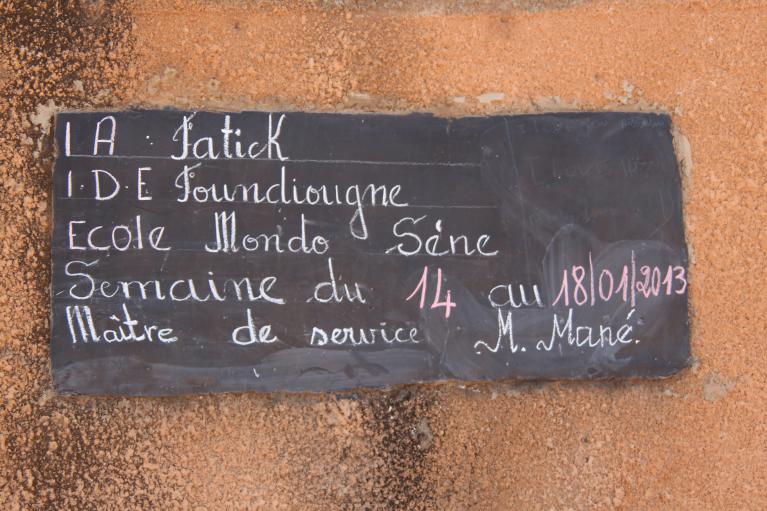 I A . Fatick
I.D.E Foundiougne
Ecole Mondo Sène
Semaine du 14 au 18/01/2013
Maître de service M. Mané.